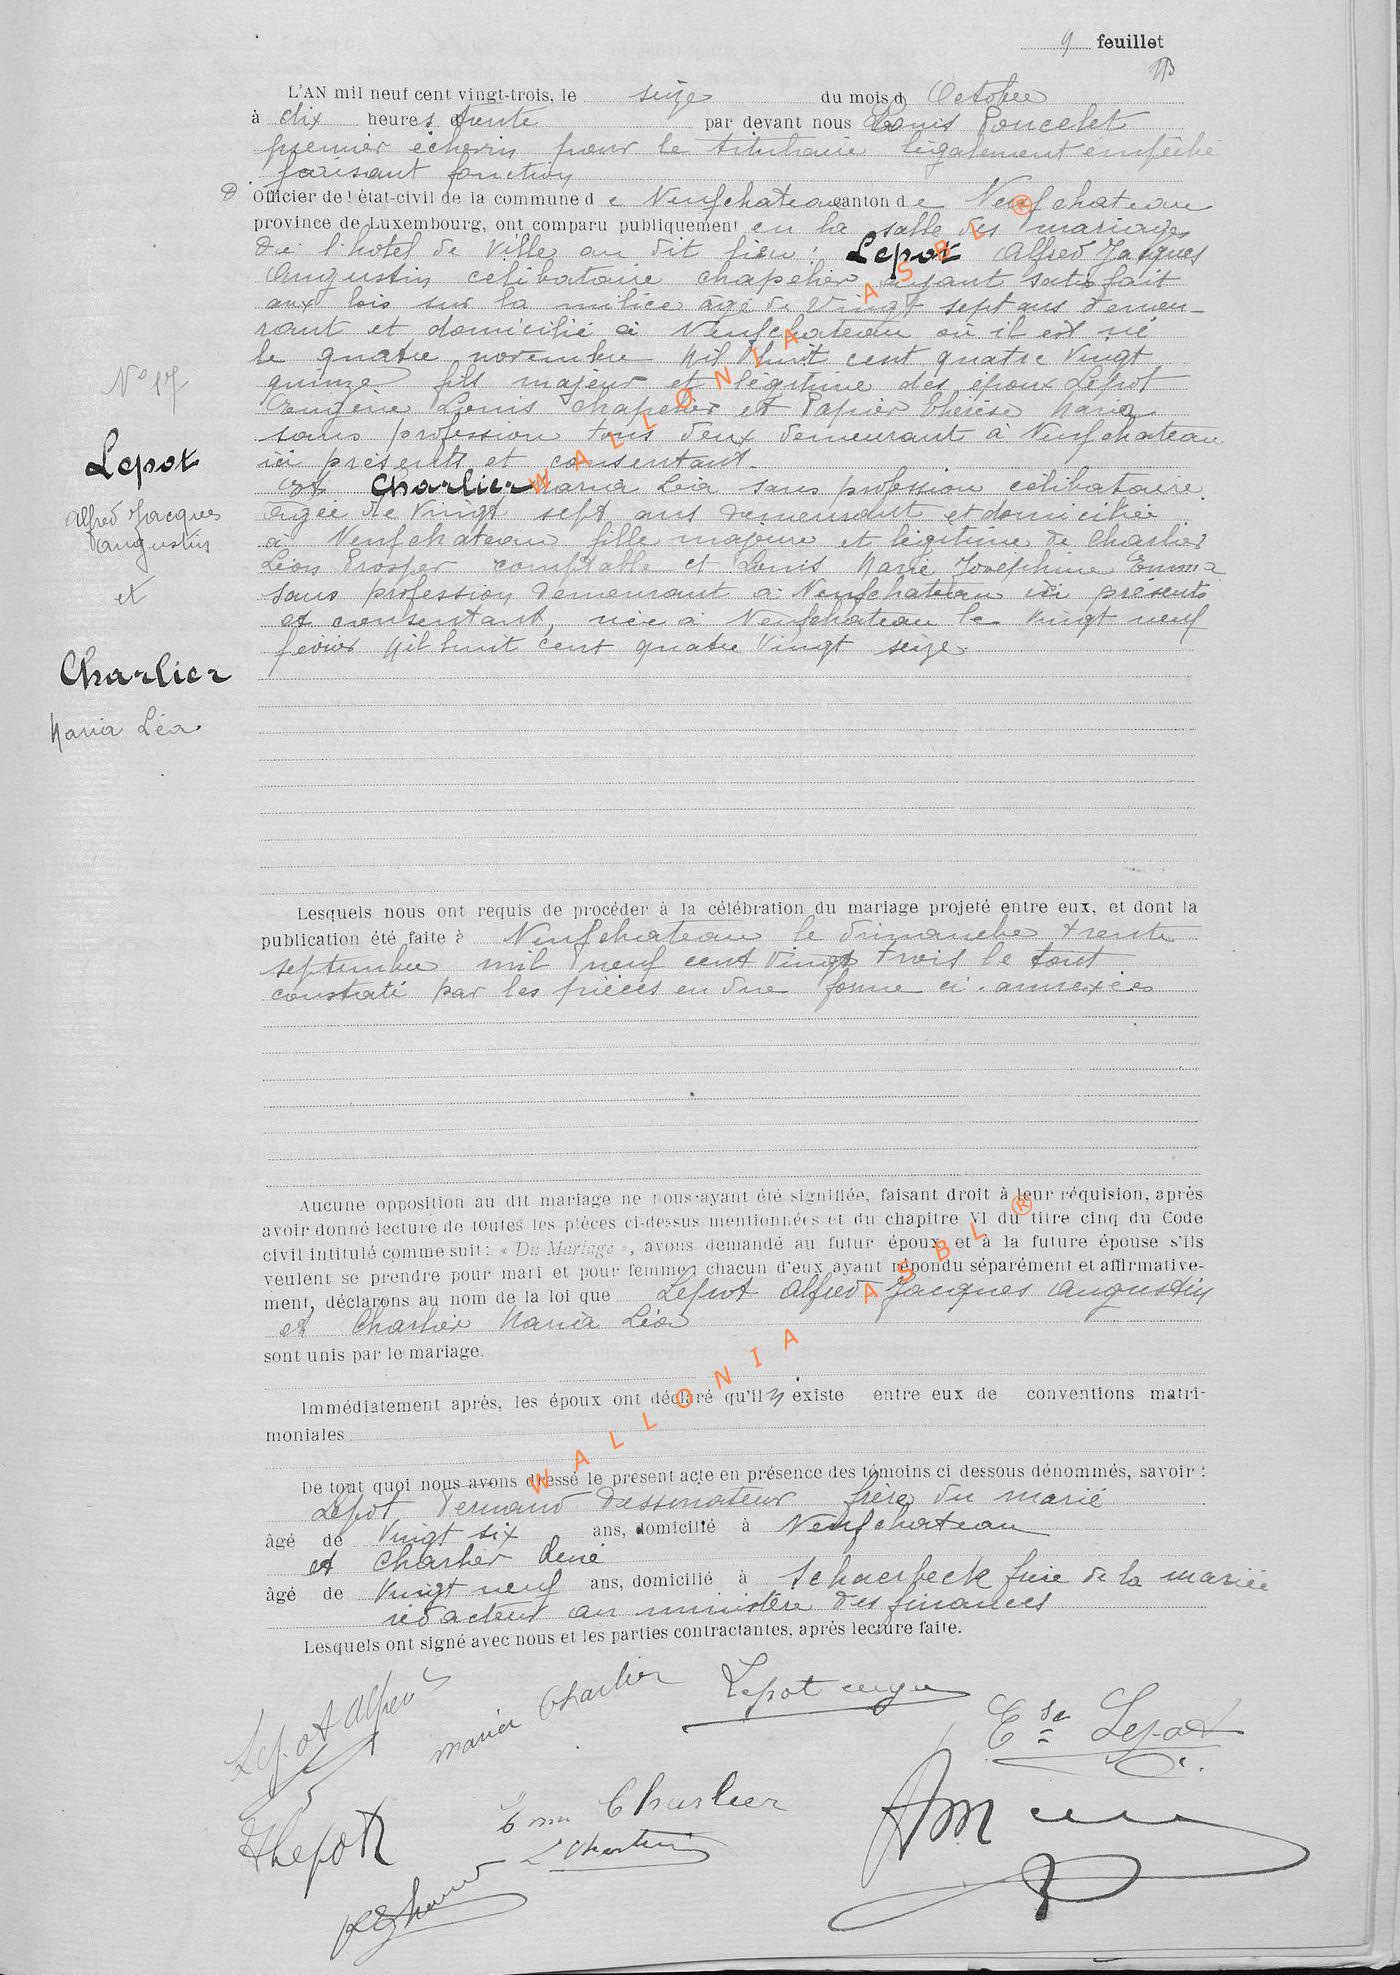 9 feuillet
L'AN mil neuf cent vingt-trois, le seize du mois d Octobre
à dix heures trente par devant nous Louis Poncelet
premier échevin pour le titulaire légalement empêché
faisant fonction
d'Officier de l'état-civil de la commune de Neufchateau canton de Neufchateau
province de Luxembourg, ont comparu publiquement en la salle des mariages
de l'hôtel de Ville au dit lieu : Lepot Alfred Jacques
Augustin celibataire chapelier ayant satisfait
aux lois sur la milice âgé de Vingt sept ans demeu-
rant et domicilié à Neufchateau où il est né
le quatre novembre Mil huit cent quatre Vingt
quinze fils majeur et légitime des époux Lepot
Eugène Louis chapelier et Papier Thérèse Maria
sans profession tous deux demeurant à Neufchateau
ici présents et consentant.
Et Charlier Maria Léa sans profession célibataire
âgée de Vingt sept ans demeurant et domiciliée
à Neufchateau fille majeure et légitime de Charlier
Léon Prosper comptable et Louis Marie Joséphine Emma
sans profession demeurant à Neufchateau ici présents
et consentant, née à Neufchateau le Vingt neuf
février Mil huit cent quatre Vingt seize.
No 17
Lepot
Alfred Jacques
Augustin
et
Charlier
Maria Léa
Lesquels nous ont requis de procéder à la célébration du mariage projeté entre eux, et dont la
publication été faite à Neufchateau le dimanche trente
septembre mil neuf cent Vingt trois le tout
constaté par les pièces en due forme ci-annexées
Aucune opposition au dit mariage ne nous-ayant été signifiée, faisant droit à leur réquision, après
avoir donné lecture de toutes les pièces ci-dessus mentionnées et du chapitre VI du titre cinq du Code
civil intitulé comme suit : « Du Mariage », avons demandé au futur époux et à la future épouse s'ils
veulent se prendre pour mari et pour femme, chacun d'eux ayant répondu séparément et affirmative-
ment, déclarons au nom de la loi que Lepot Alfred Jacques Augustin
et Charlier Maria Léa
sont unis par le mariage.
Immédiatement après, les époux ont déclaré qu'il n'existe entre eux de conventions matri-
moniales
De tout quoi nous avons dressé le présent acte en présence des témoins ci dessous dénommés, savoir :
Lepot Fernand dessinateur frère du marié
âgé de Vingt six ans, domicilié à Neufchateau
et Charlier René
âgé de Vingt neuf ans, domicilié à Schaerbeck frère de la mariée
rédacteur au ministère des finances
Lesquels ont signé avec nous et les parties contractantes, après lecture faite.
Lepot Alfred
Maria Charlier
Lepot
Lepot
Charlier
WALLONIA ASBL ®
WALLONIA ASBL ®